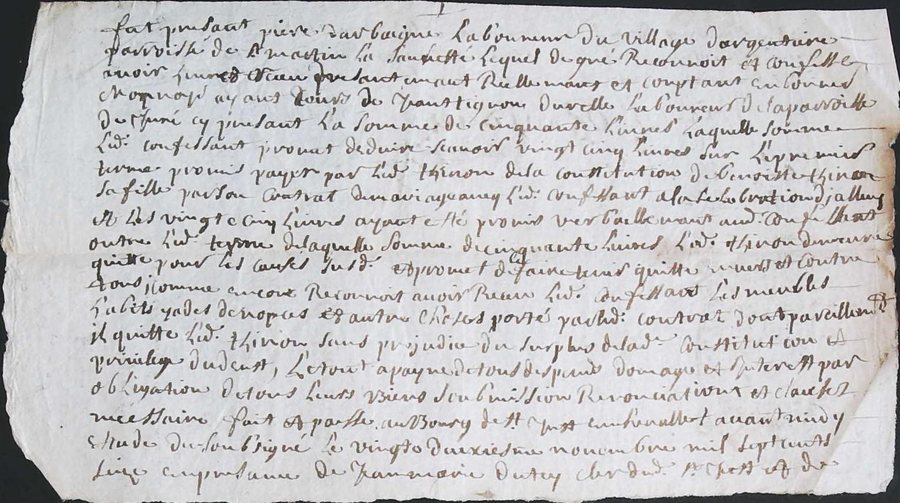 fut presant piere darbaigne Laboureur du village dargentaire
parroisse de st martin La sauvetté Lequel de gré Reconnoit et confesse
avoir Livres et Receu presantemant Reellemans et constant en bonnes
monnoye ayans cours de Jean Laboureur de la parroisse
de Juré cy presant La somme de cinquante Livres Laquelle somme
Led. confessant promet deduire scavoir vingt cinq Livres sur Le premier
terme promis payer par Led. thinon de la constitution de benoiste thinon
sa fille par son contrat de mariage avecq Led. confessant a la celebration
et Les vingte cinq Livres ayant esté promis verballemant aud. confessant
outre Led. terme de laquelle somme de cinquante Livres Led. thinon demeure
quitte pour les causes susd. et promet de faire tenir quitte envers et contre
tous comme encore Reconnoit avoir Receu Led. confessant Les meubles
habits de nopces et autre choses porté par led. contrat dont pareillemt
il quitte Led. thinon sans prejudice du surplus de lad. constitution et
privilege Le tout a payne de tous despans domage et Interest par
obligation de tous Leurs biens soubmission Renonciations et clauses
necessaire fait et passe au bourg de st Just en chevallet avant midy
estude du soubsigné Le vingte deuxiesme novembre mil sept cents
seize en presance de Jean marie dutey clerc dud. st Just et de